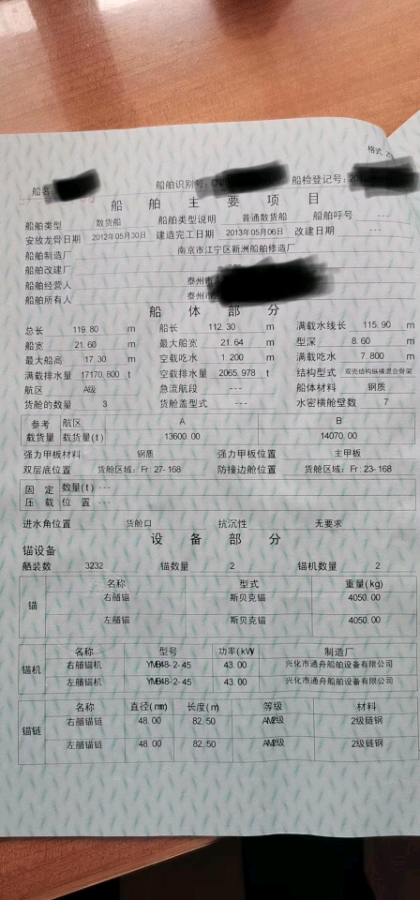 格式
船名
船舶识别号：CN
船检登记号：20
船舶主要项目
船舶类型 散货船 船舶类型说明 普通散货船 船舶呼号 ---
安放龙骨日期 2012年05月30日 建造完工日期 2013年05月06日 改建日期 ---
船舶制造厂 南京市江宁区新洲船舶修造厂
船舶改建厂
船舶经营人 泰州市
船舶所有人 泰州市
船体部分
总长 119.80 m 船长 112.30 m 满载水线长 115.90 m
船宽 21.60 m 最大船宽 21.64 m 型深 8.60 m
最大船高 17.30 m 空载吃水 1.200 m 满载吃水 7.800 m
满载排水量 17170.800 t 空载排水量 2065.978 t 结构型式 双壳结构纵横混合骨架
航区 A级 急流航段 --- 船体材料 钢质
货舱的数量 3 货舱盖型式 --- 水密横舱壁数 7
参考载货量 航区 A B
载货量(t) 13600.00 14070.00
强力甲板材料 钢质 强力甲板位置 主甲板
双层底位置 货舱区域：Fr:27-168 防撞边舱位置 货舱区域：Fr:23-168
固定压载 数量(t) ---
位置 ---
进水角位置 货舱口 抗沉性 无要求
设备部分
锚设备
舾装数 3232 锚数量 2 锚机数量 2
锚 名称 型式 重量(kg)
右艏锚 斯贝克锚 4050.00
左艏锚 斯贝克锚 4050.00
锚机 名称 型号 功率(kW) 制造厂
右艏锚机 YMB48-2-45 43.00 兴化市通舟船舶设备有限公司
左艏锚机 YMB48-2-45 43.00 兴化市通舟船舶设备有限公司
锚链 名称 直径(mm) 长度(m) 等级 材料
右艏锚链 48.00 82.50 AM2级 2级链钢
左艏锚链 48.00 82.50 AM2级 2级链钢